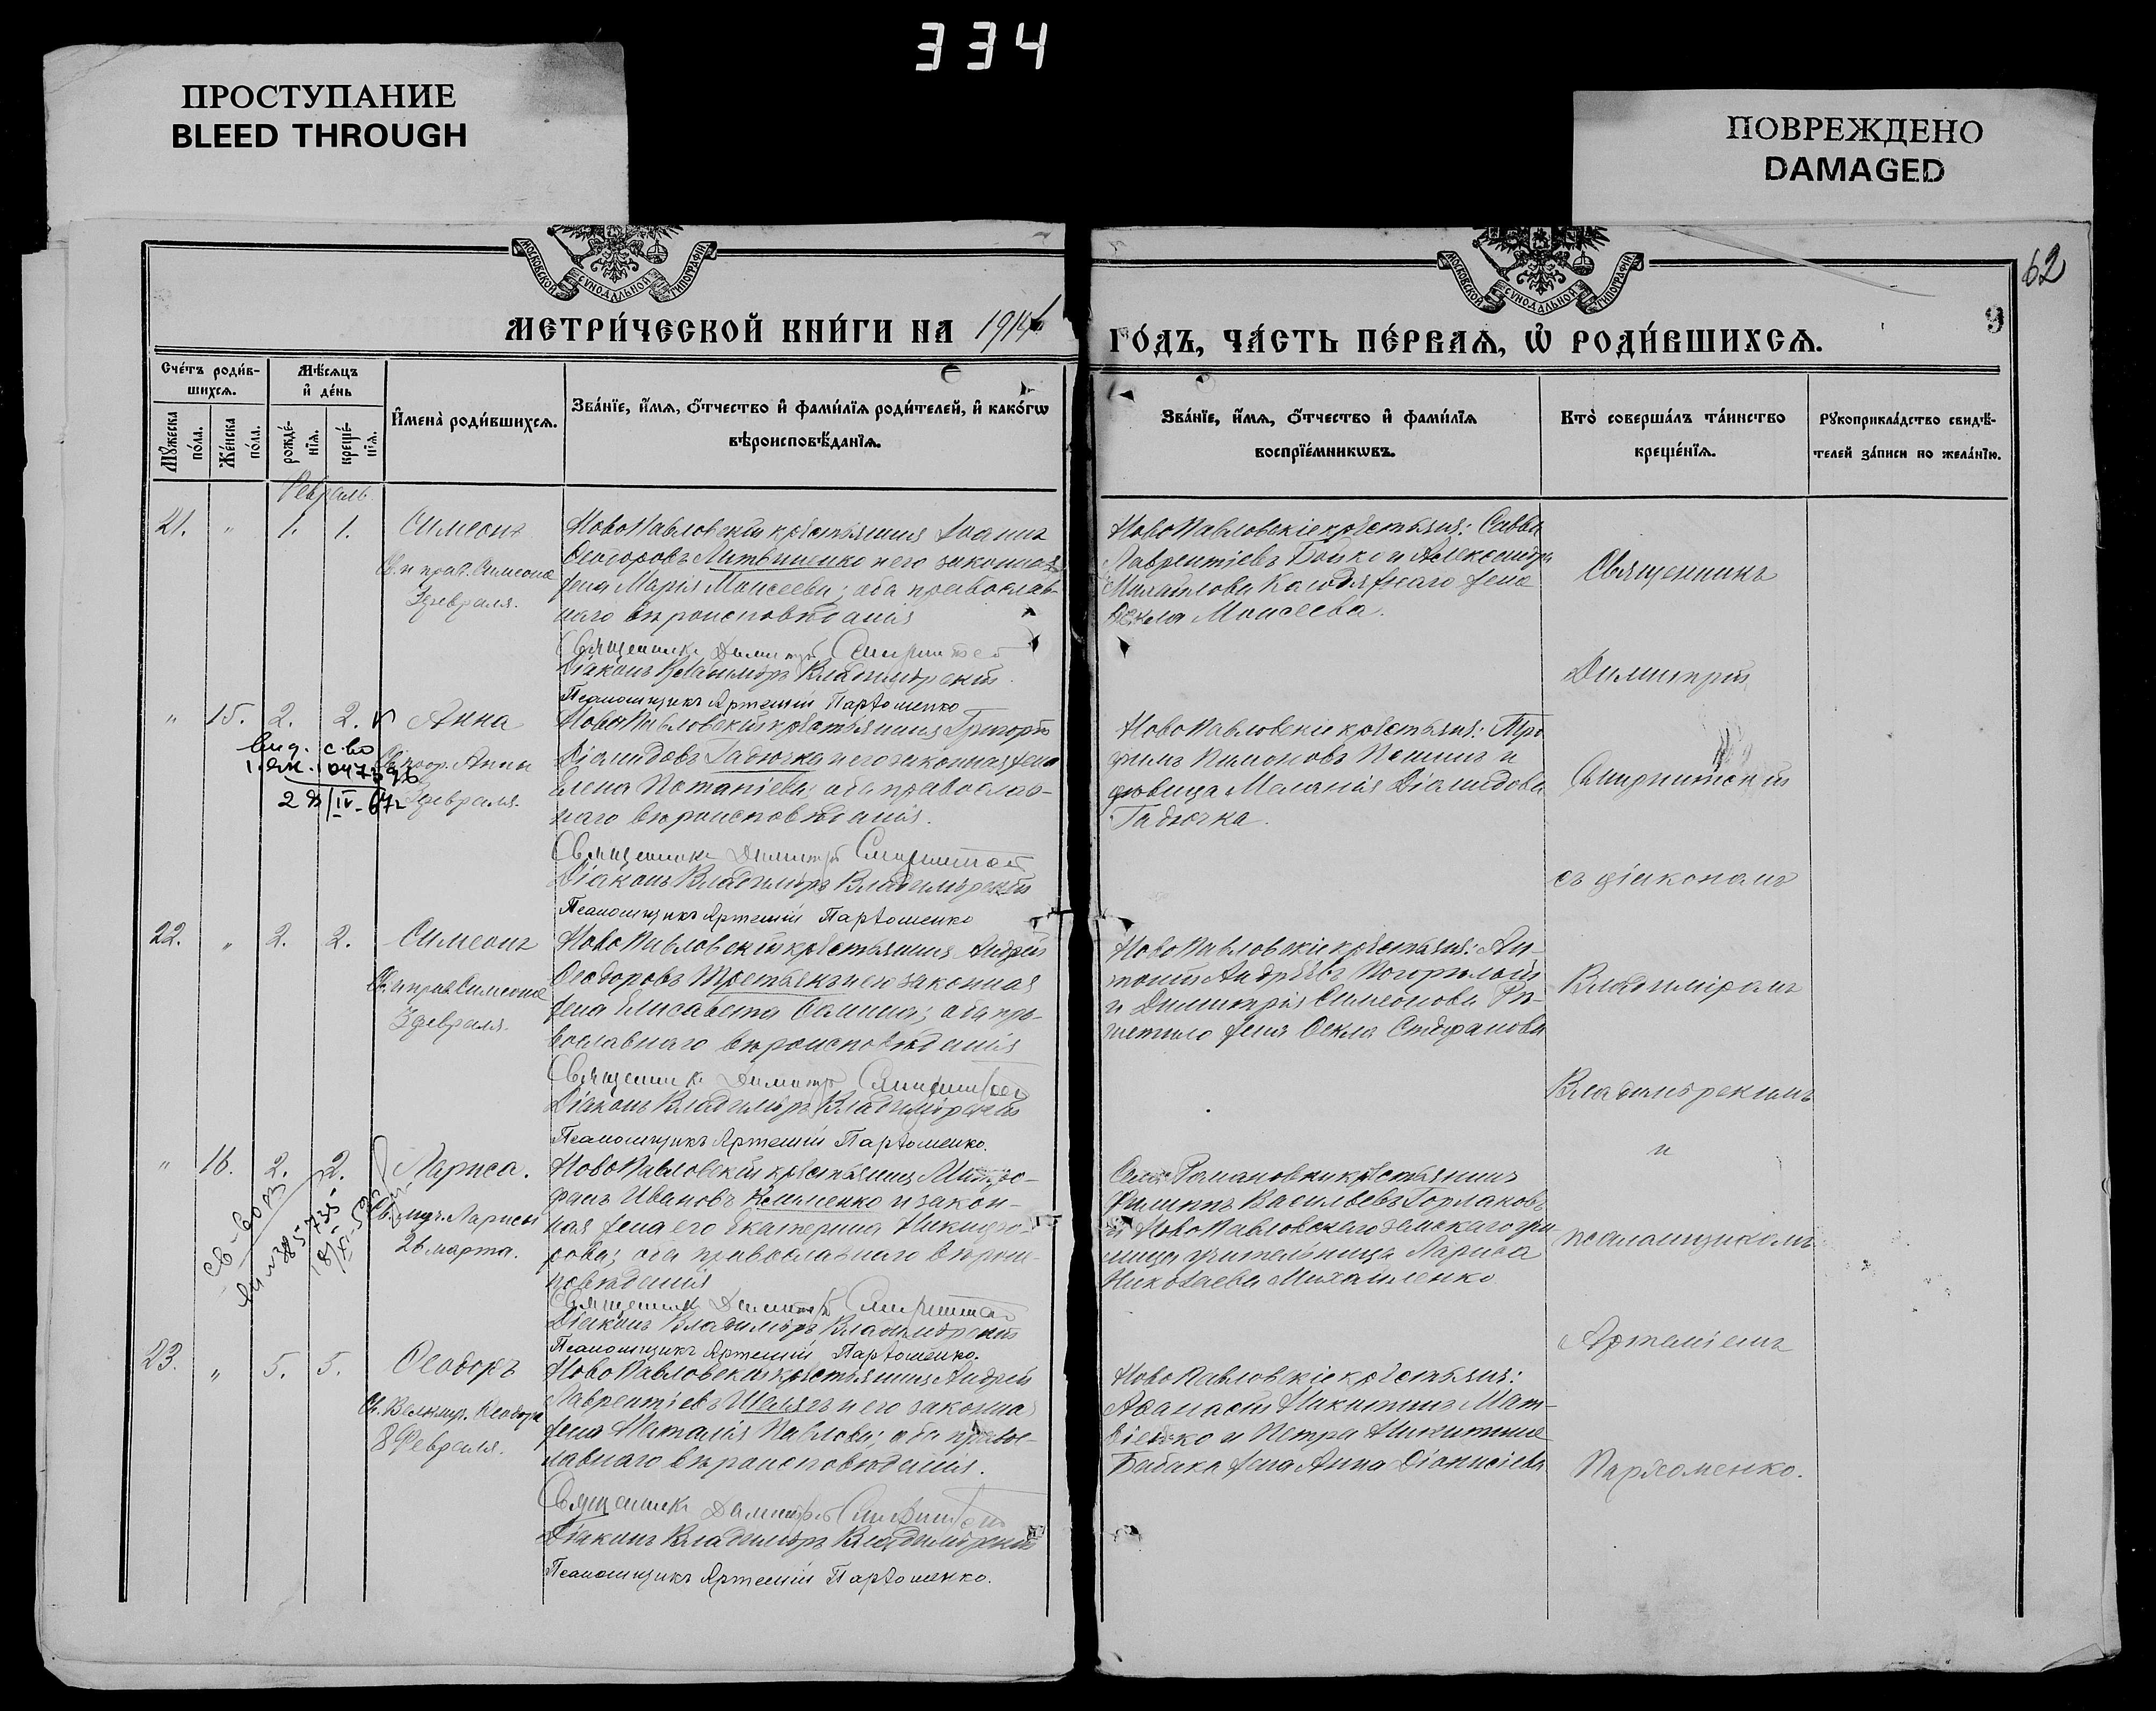 334
ПРОСТУПАНИЕ
BLEED THROUGH
ПОВРЕЖДЕНО
DAMAGED
МОСКОВСКОЙ СУНОДАЛЬНОЙ ТИПОГРАФІИ
МОСКОВСКОЙ СУНОДАЛЬНОЙ ТИПОГРАФІИ
62
9
МЕТРИ́ЧЕСКОЙ КНИ́ГИ НА 1914
ГО́ДЪ, ЧА́СТЬ ПЕ́РВАѦ, Ѡ РОДИ́ВШИХСѦ.
Сче́тъ роди́в-
шихсѧ.
Мѣ́сѧцъ
и҆ де́нь
Мꙋжеска
по́ла.
Же́нска
по́ла.
рожде́-
нїѧ.
креще́-
нїѧ.
И҆мена̀ роди́вшихсѧ.
Зва́нїе, и҆́мѧ, ѻ҆́тчество и҆ фами́лїѧ роди́телей, и҆ како́гѡ
вѣроисповѣ́данїѧ.
Зва́нїе, и҆́мѧ, ѻ҆́тчество и҆ фами́лїѧ
воспрїе́мникѡвъ.
Кто̀ соверша́лъ та́инство
креще́нїѧ.
Рꙋкоприкла́дство свидѣ́-
телей за́писи по жела́нїю.
Февраль
21. " 1. 1. Симеонъ
Св. и прав. Симеона
3 февраля.
НовоПавловскій крестьянинъ Іоаннъ
Ѳеодоровъ Литвиненко и его законная
жена Марія Моисеева; оба православ-
наго вѣроисповѣданія
Священникъ Димитрій
Діаконъ Владиміръ Владимірскій
Псаломщикъ Артемій Пархоменко
НовоПавловскіе крестьяне: Савва
Лаврентіевъ Бойко и Александра
Михайлова жена
Ѳекла Моисеева.
Священникъ
Димитрій
" 15. 2. 2. Анна
Св. прор. Анны
3 февраля.
НовоПавловскій крестьянинъ Григорій
Діомидовъ Гадючка и его законная жена
Елена Потапіева; оба православ-
наго вѣроисповѣданія.
Священникъ Димитрій
Діаконъ Владиміръ Владимірскій
Псаломщикъ Артемій Пархоменко
НовоПавловскіе крестьяне: Тро-
фимъ и
дѣвица Меланія Діомидова
Гадючка.
съ діакономъ
22. " 2. 2. Симеонъ
Св. и прав. Симеона
3 февраля.
НовоПавловскій крестьянинъ Андрей
Ѳеодоровъ Третьякъ и его законная
жена Елисавета; оба пра-
вославнаго вѣроисповѣданія
Священникъ Димитрій
Діаконъ Владиміръ Владимірскій
Псаломщикъ Артемій Пархоменко.
НовоПавловскіе крестьяне: Ан-
тоній Андреевъ Погорѣлый
и Димитрія Симеонова Рѣ-
шетило жена Ѳекла Стефанова
Владиміромъ
Владимірскимъ
и
" 16. 2. 2. Лариса.
Св. муч. Ларисы
26 марта.
НовоПавловскій крестьянинъ Митро-
фанъ Ивановъ Клименко и закон-
ная жена его Екатерина Никифо-
рова; оба православнаго вѣроис-
повѣданія
Священникъ Димитрій
Діаконъ Владиміръ Владимірскій
Псаломщикъ Артемій Пархоменко.
Села Романовки крестьянинъ
Филиппъ Васильевъ Горлаковъ
и НовоПавловскаго земскаго учи-
лища учительница Лариса
Николаева Михайленко
псаломщикомъ
Артеміемъ
23. " 5. 5. Ѳеодоръ
Св. Велкмуч. Ѳеодора
8 Февраля.
НовоПавловскій крестьянинъ Андрей
Лаврентіевъ Шелягъ и его законная
жена Наталія Павлова; оба правос-
лавнаго вѣроисповѣданія.
Священникъ Димитрій
Діаконъ Владиміръ Владимірскій
Псаломщикъ Артемій Пархоменко.
НовоПавловскіе крестьяне:
Аѳанасій Никитинъ Мат-
віенко и Петра Никитина
Бабака жена Анна Діонисіева
Пархоменко.